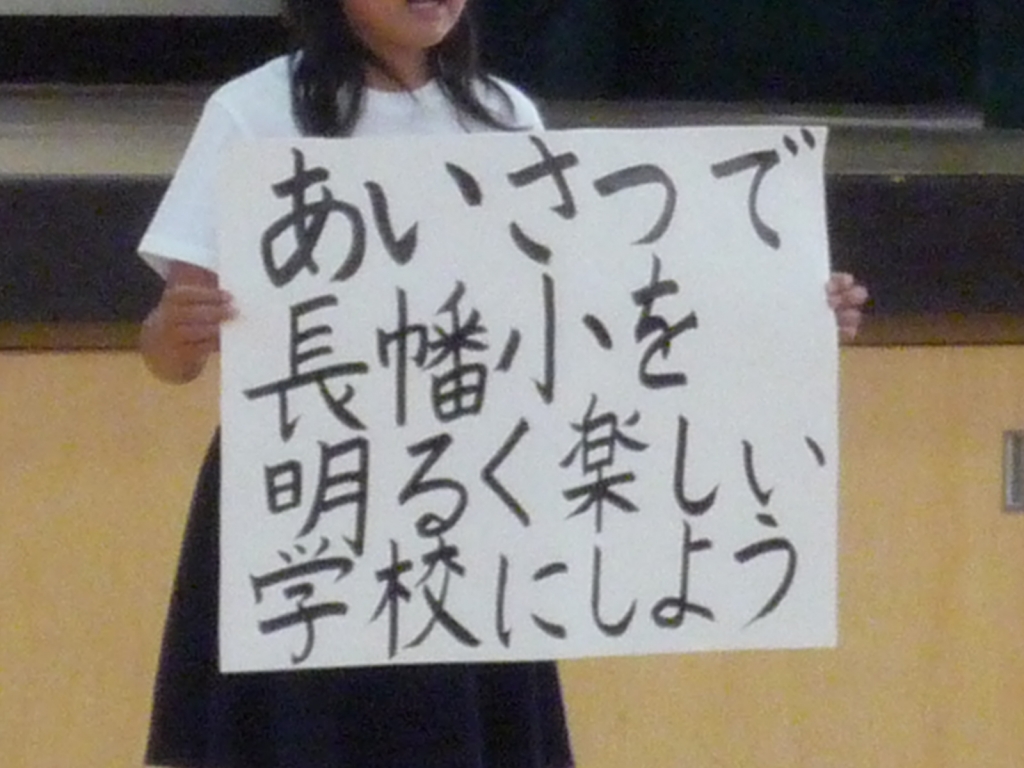 あいさつで
長幡小を
明るく楽しい
学校にしよう